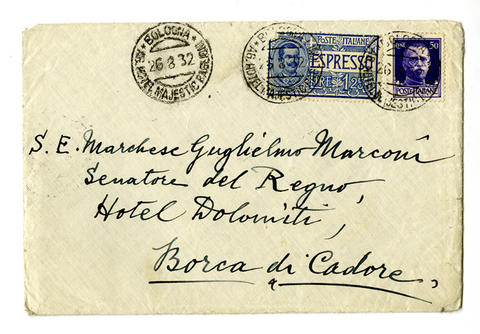 BOLOGNA
26·8·32
AG. HOTEL MAJESTIC BAGLIONI
POSTE ITALIANE
ESPRESSO
LIRE 1,25
50
POSTE ITALIANE
S. E. Marchese Guglielmo Marconi
Senatore del Regno,
Hotel Dolomiti,
Borca di Cadore.